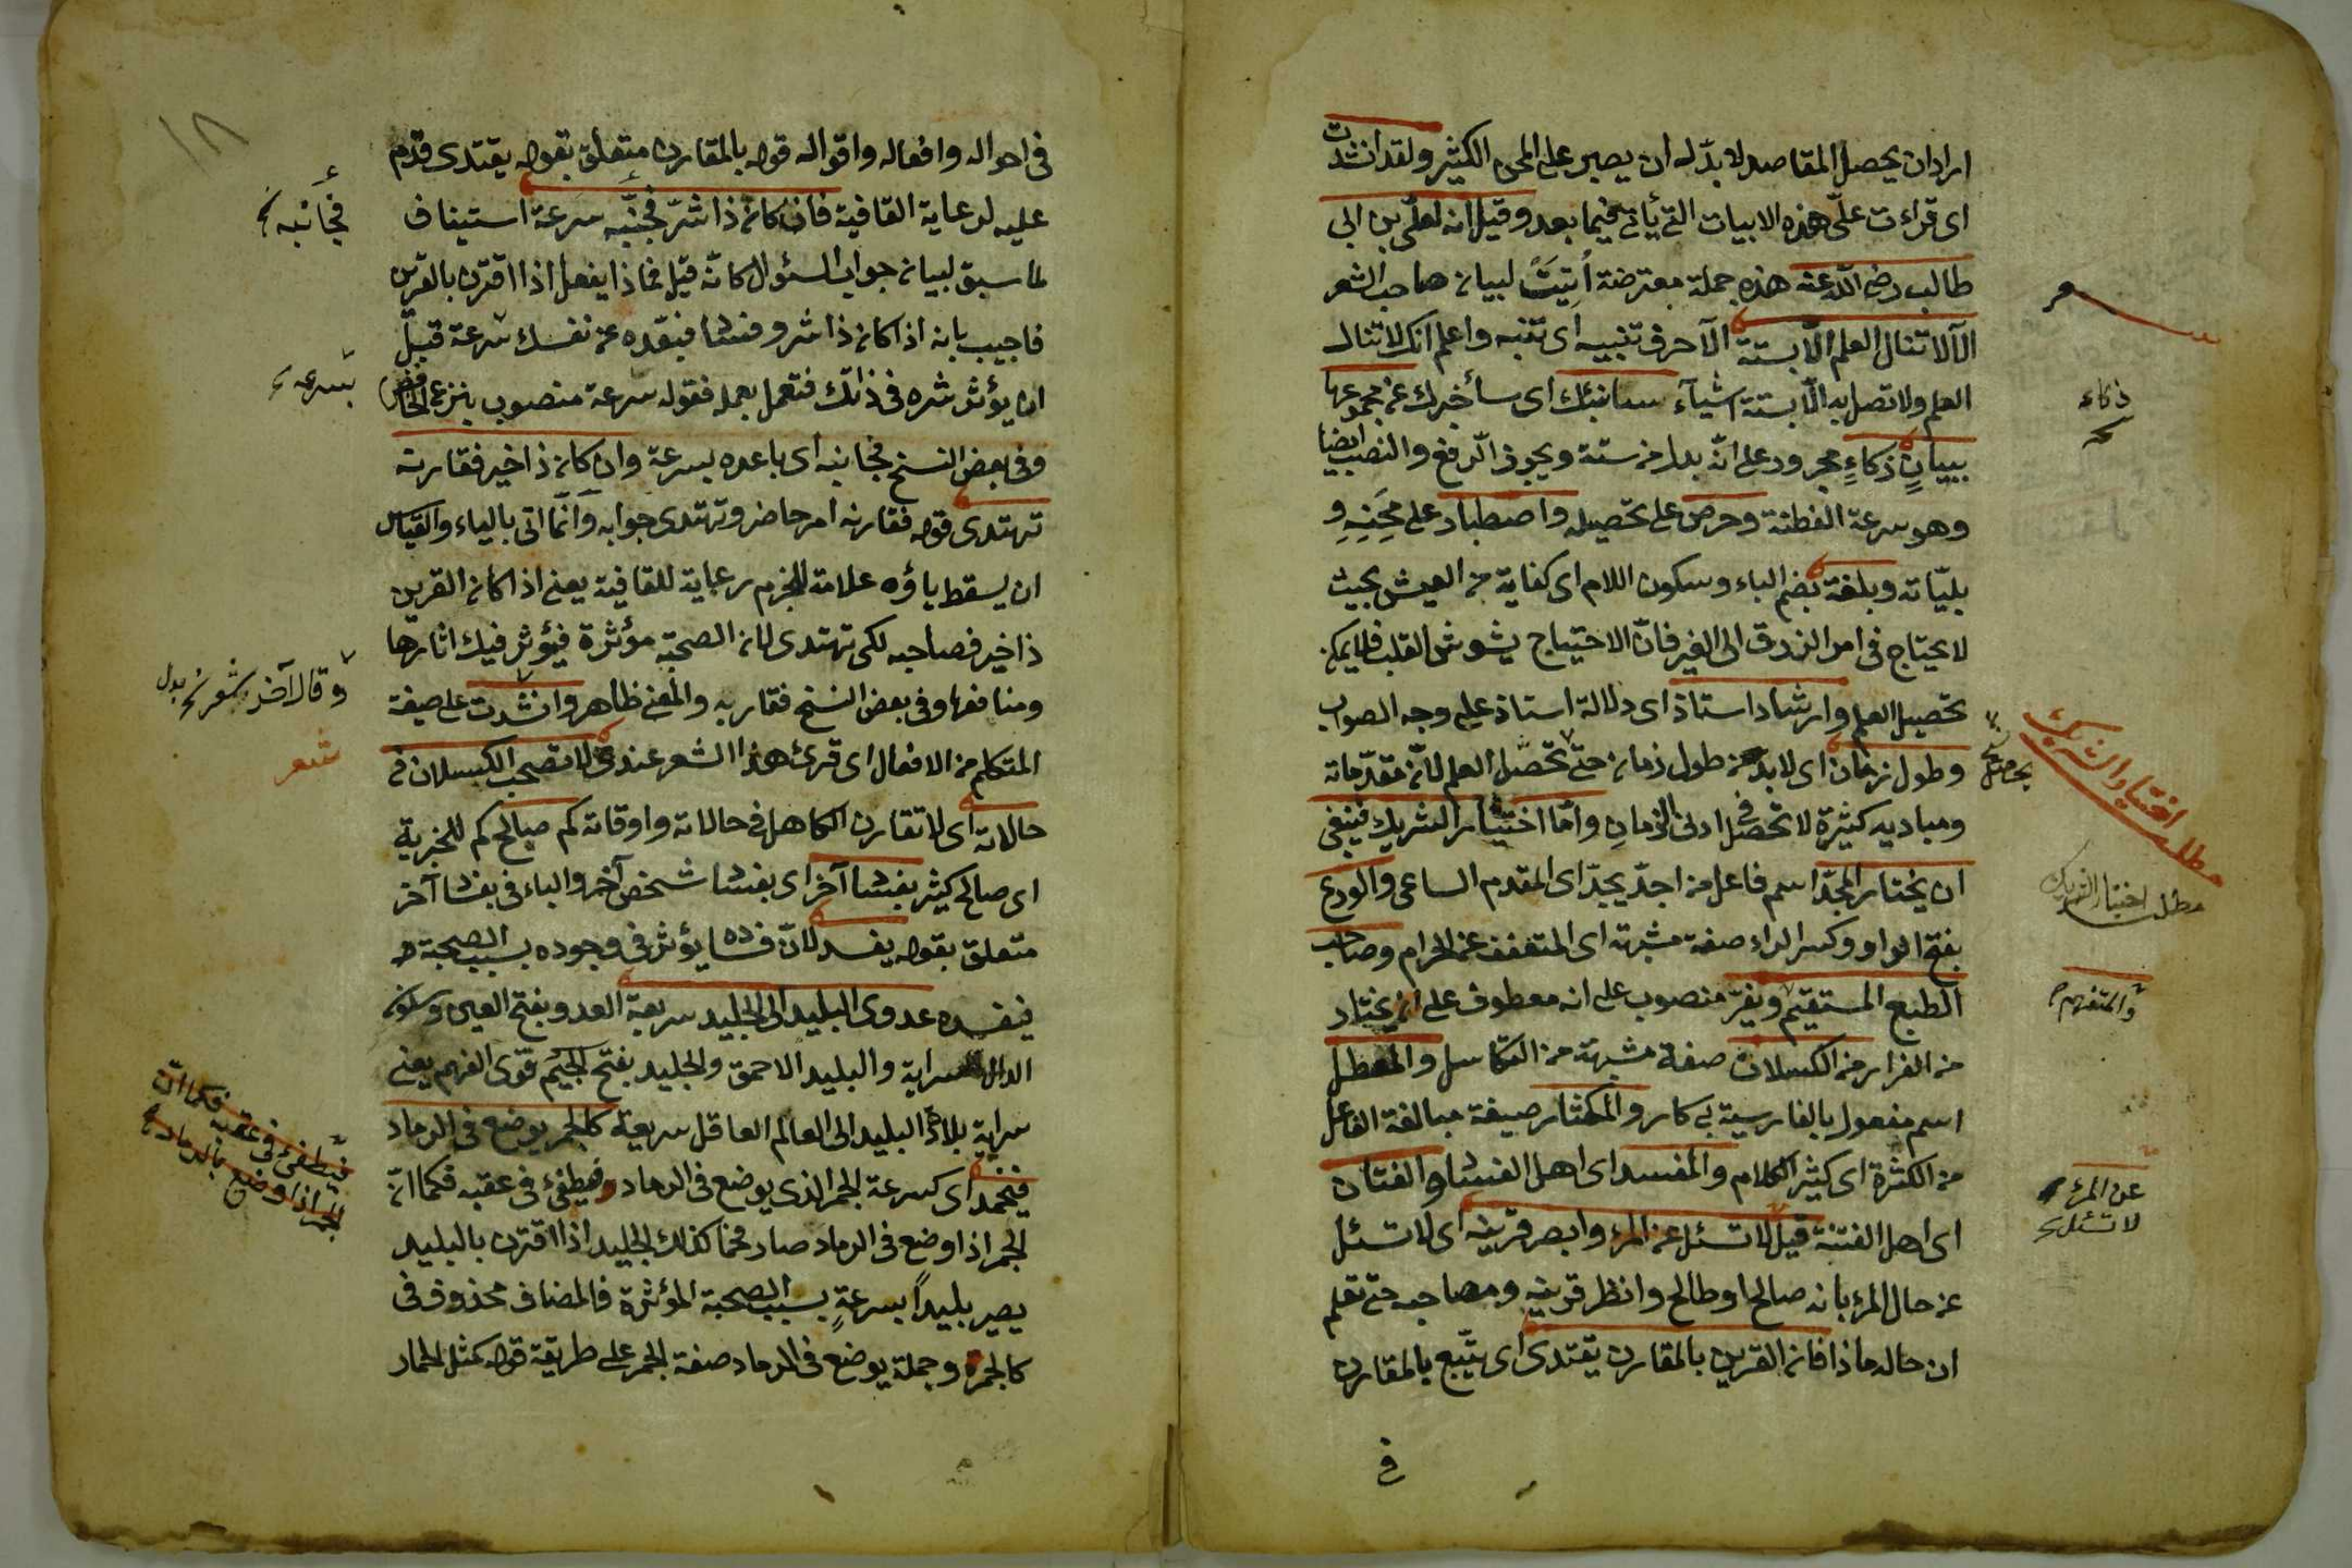 اراد ان يحصل المقاصد لا بدّ له ان يصبر على المحن الكثير ولقد انشدت
اى قراءت علىّ هذه الابيات التى يأتى فيما بعد وقيل انه لعلى بن ابى
طالب رضى اللّه عنه هذه جملة معترضة أُتِيَتْ لبيان صاحب الشعر
الآ لا تنال العلم الّا بستة الآ حرف تنبيه اى تنبه واعلم انك لا تنال
العلم ولا تصل به الّا بستة اشيآء سانبئك اى سأخبرك عن مجموعها
ببيانٍ ذكاءٍ مجرور على انّه بدل من ستة ويجوز الرفع والنصب ايضا
وهو سرعة الفطنة وحرص على تحصيله واصطبار على مِحَنِهِ و
بليّاته وبلغة بضم الباء وسكون اللام اى كفاية من العيش بحيث
لا يحتاج فى امر الرزق الى الغير فانّ الاحتياج يشوش القلب فلا يمكن
تحصيل العلم وارشاد استاذ اى دلالة استاذ على وجه الصواب
وطول زمان اى لا بد من طول زمان حتى تحصّل العلم لانّ مقدّماته
ومباديه كثيرة لا تحصل فى ادنى الزمان وامّا اختيار الشريك فينبغى
ان يختار المجدّ اسم فاعل من اجدّ يجدّ اى المقدم الساعى والورع
بفتح الواو وكسر الراء صفة مشبهة اى المتعفف عن الحرام وصاحب
الطبع المستقيم ويفرّ منصوب على انه معطوف على ان يختار
من الفرار من الكسلان صفة مشبهة من التكاسل والمعطل
اسم مفعول بالفارسية بى كار والمكثار صيغة مبالغة الفاعل
من الكثرة اى كثير الكلام والمفسد اى اهل الفساد والفتان
اى اهل الفتنة قيل لا تسئل عن المرء وابصر قرينه اى لا تسئل
عن حال المرء بانه صالح او طالح وانظر قرينه ومصاحبه حتى تعلم
ان حاله ماذا فان القرين بالمقارن يقتدى اى يتّبع بالمقارن
فى
شعر
ذكاء
يحصل
مطلب اختيار الشريك
مطلب اختيار الشريك
والمتفهم
عن المرء
لا تسئل
١٨
فى احواله وافعاله واقواله قوله بالمقارن متعلق بقوله يقتدى قدم
عليه لرعاية القافية فان كان ذا شرّ فجنّبه سرعة استيناف
لما سبق لبيان جواب السئوال كانّه قيل فماذا يفعل اذا اقترن بالقرين
فاجيب بانه اذا كان ذا شر وفساد فبعّده عن نفسك سرعة قبل
ان يؤثر شره فى ذاتك فتعمل بعمله فقوله سرعة منصوب بنزع الخافض
وفى بعض النسخ فجانبه اى باعده بسرعة وان كان ذا خير فقارنه
تهتدى قوله فقارنه امر حاضر وتهتدى جوابه وانّما اتى بالياء والقياس
ان يسقط ياؤه علامة للجزم رعاية للقافية يعنى اذا كان القرين
ذا خير فصاحبه لكى تهتدى لان الصحبة مؤثرة فيؤثر فيك اثارها
ومنافعها وفى بعض النسخ فقاربه والمعنى ظاهر وانشدت على صيغة
المتكلم من الافعال اى قرئ هذا الشعر عندى لا تصحب الكسلان فى
حالاته اى لا تقارن الكاهل فى حالاته واوقاته كم صالح كم للخبرية
اى صالح كثير بفساد آخر اى بفساد شخص آخر والباء فى بفساد آخر
متعلق بقوله يفسد لانّ فساده يؤثر فى وجوده بسبب الصحبة
فيفسده عدوى البليد الى الجليد سريعة العدو بفتح العين وسكون
الدال سراية والبليد الاحمق والجليد بفتح الجيم قوى الفهم يعنى
سراية بلادة البليد الى العالم العاقل سريعة كالجمر يوضع فى الرماد
فيخمد اى كسرعة الجمر الذى يوضع فى الرماد فيطفئ فى عقبه فكما انّ
الجمر اذا وضع فى الرماد صار فحما كذلك الجليد اذا اقترن بالبليد
يصير بليداً بسرعةٍ بسبب الصحبة المؤثرة فالمضاف محذوف فى
كالجمر وجملة يوضع فى الرماد صفة الجمر على طريقة قوله كمثل الحمار
فجانبه
بسرعة
وقال آخر شعر بدل
شعر
فيطفئ فى عقبه فكما انّ
الجمر اذا وضع فى الرماد